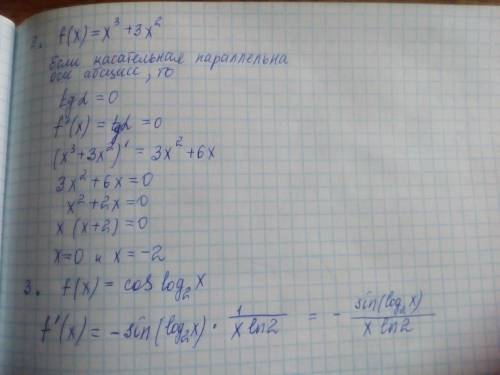 2. f(x) = x³ + 3x²
Если касательная параллельна
оси абсцисс, то
tg α = 0
f'(x) = tg α = 0
(x³ + 3x²)' = 3x² + 6x
3x² + 6x = 0
x² + 2x = 0
x (x + 2) = 0
x = 0 и x = -2
3. f(x) = cos log₂ x
f'(x) = - sin (log₂ x) · 1 / (x ln 2) = - sin (log₂ x) / (x ln 2)